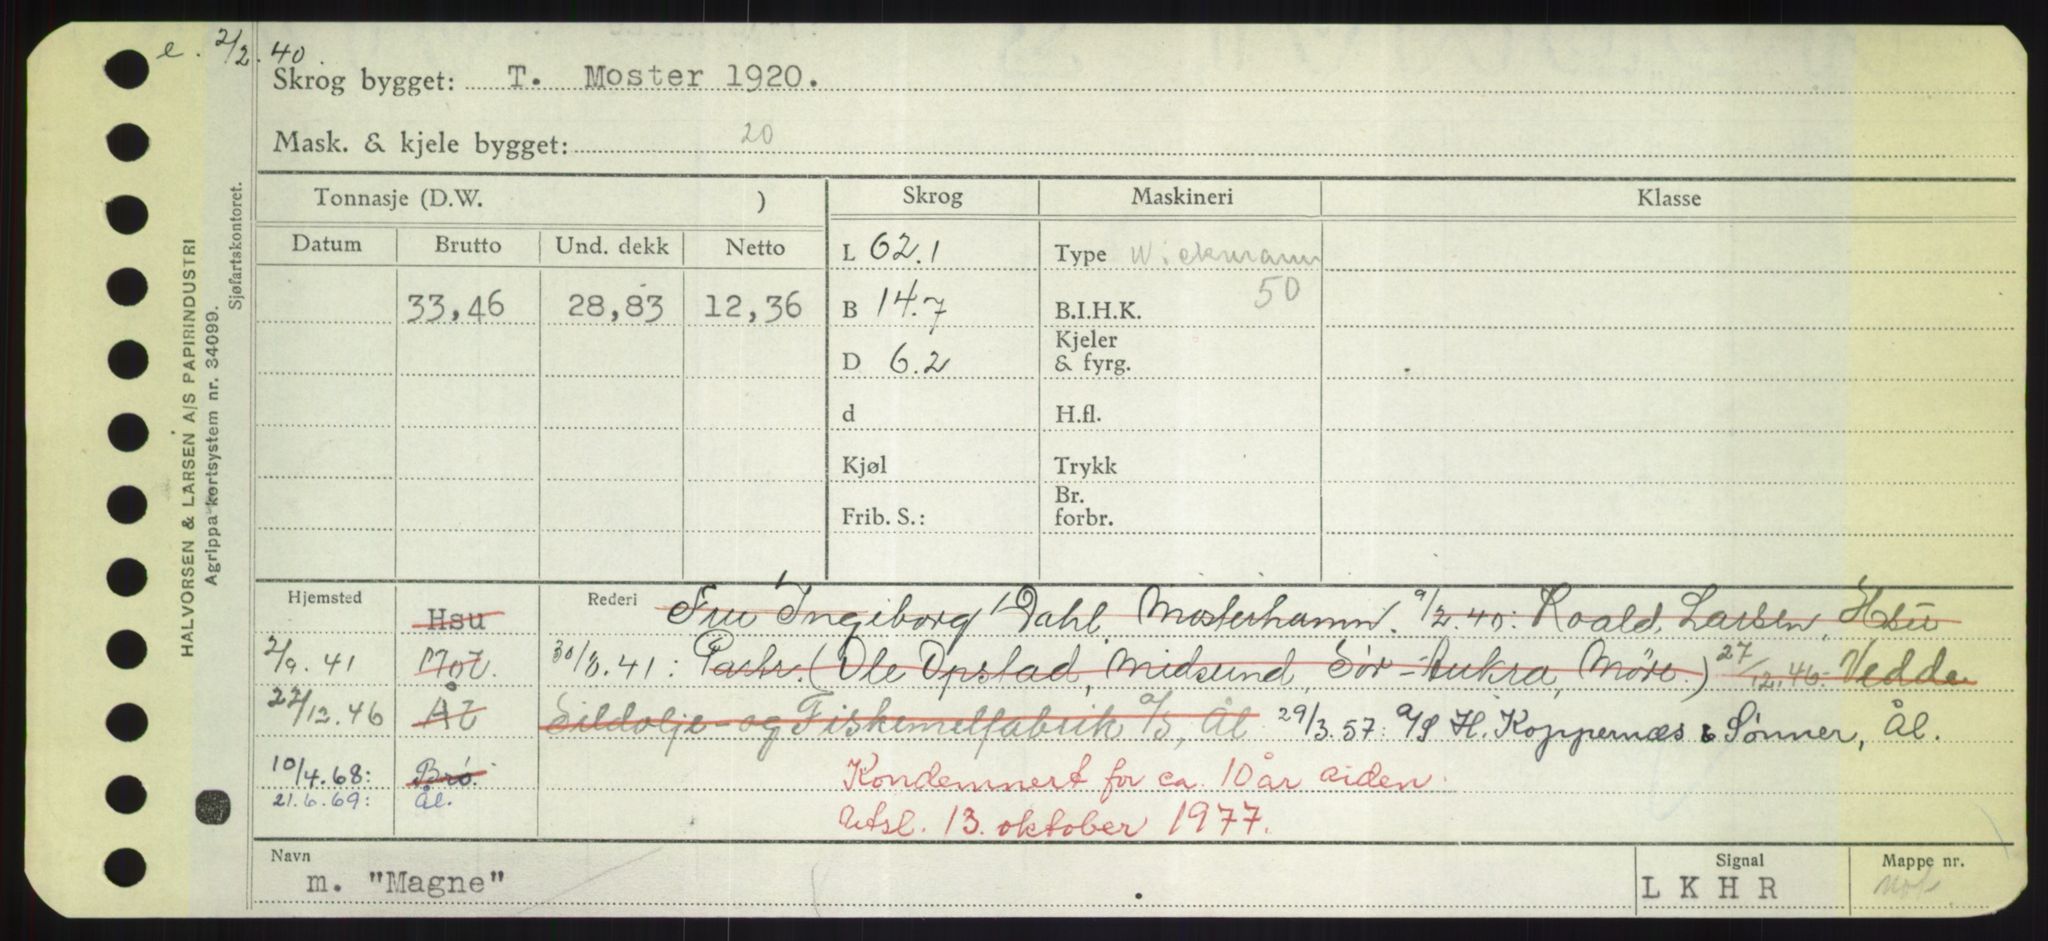 e. 2/2.40.
Skrog bygget: T. Moster 1920.
Mask. & kjele bygget: 20
Tonnasje (D.W. )
Skrog
Maskineri
Klasse
Datum Brutto Und. dekk Netto
L 62.1
Type Wickmann
33,46 28,83 12,36
B 14.7
B.I.H.K. 50
D 6.2
Kjeler
& fyrg.
d
H.fl.
Kjøl
Trykk
Frib. S.:
Br.
forbr.
Hjemsted Hsu Rederi Fru Ingeborg Dahl, Mosterhamn. 9/2.40: Roald Larsen, Hsu
2/9.41 Mol. 30/8.41: Partr. (Ole Opstad, Midsund, Sör-Aukra, Möre.) 27/12.46: Vedde
27/12.46 Ål Sildolje- og Fiskemelfabrik A/S, Ål 29/3.57: A/S H. Koppernæs & Sønner, Ål.
10/4.68: Brø. Kondemnert for ca. 10 år siden.
21.6.69: Ål. Utsl. 13. oktober 1977.
Navn
m. "Magne"
Signal
L K H R
Mappe nr.
HALVORSEN & LARSEN A/S PAPIRINDUSTRI
Agrippa kortsystem nr. 34099.
Sjøfartskontoret.